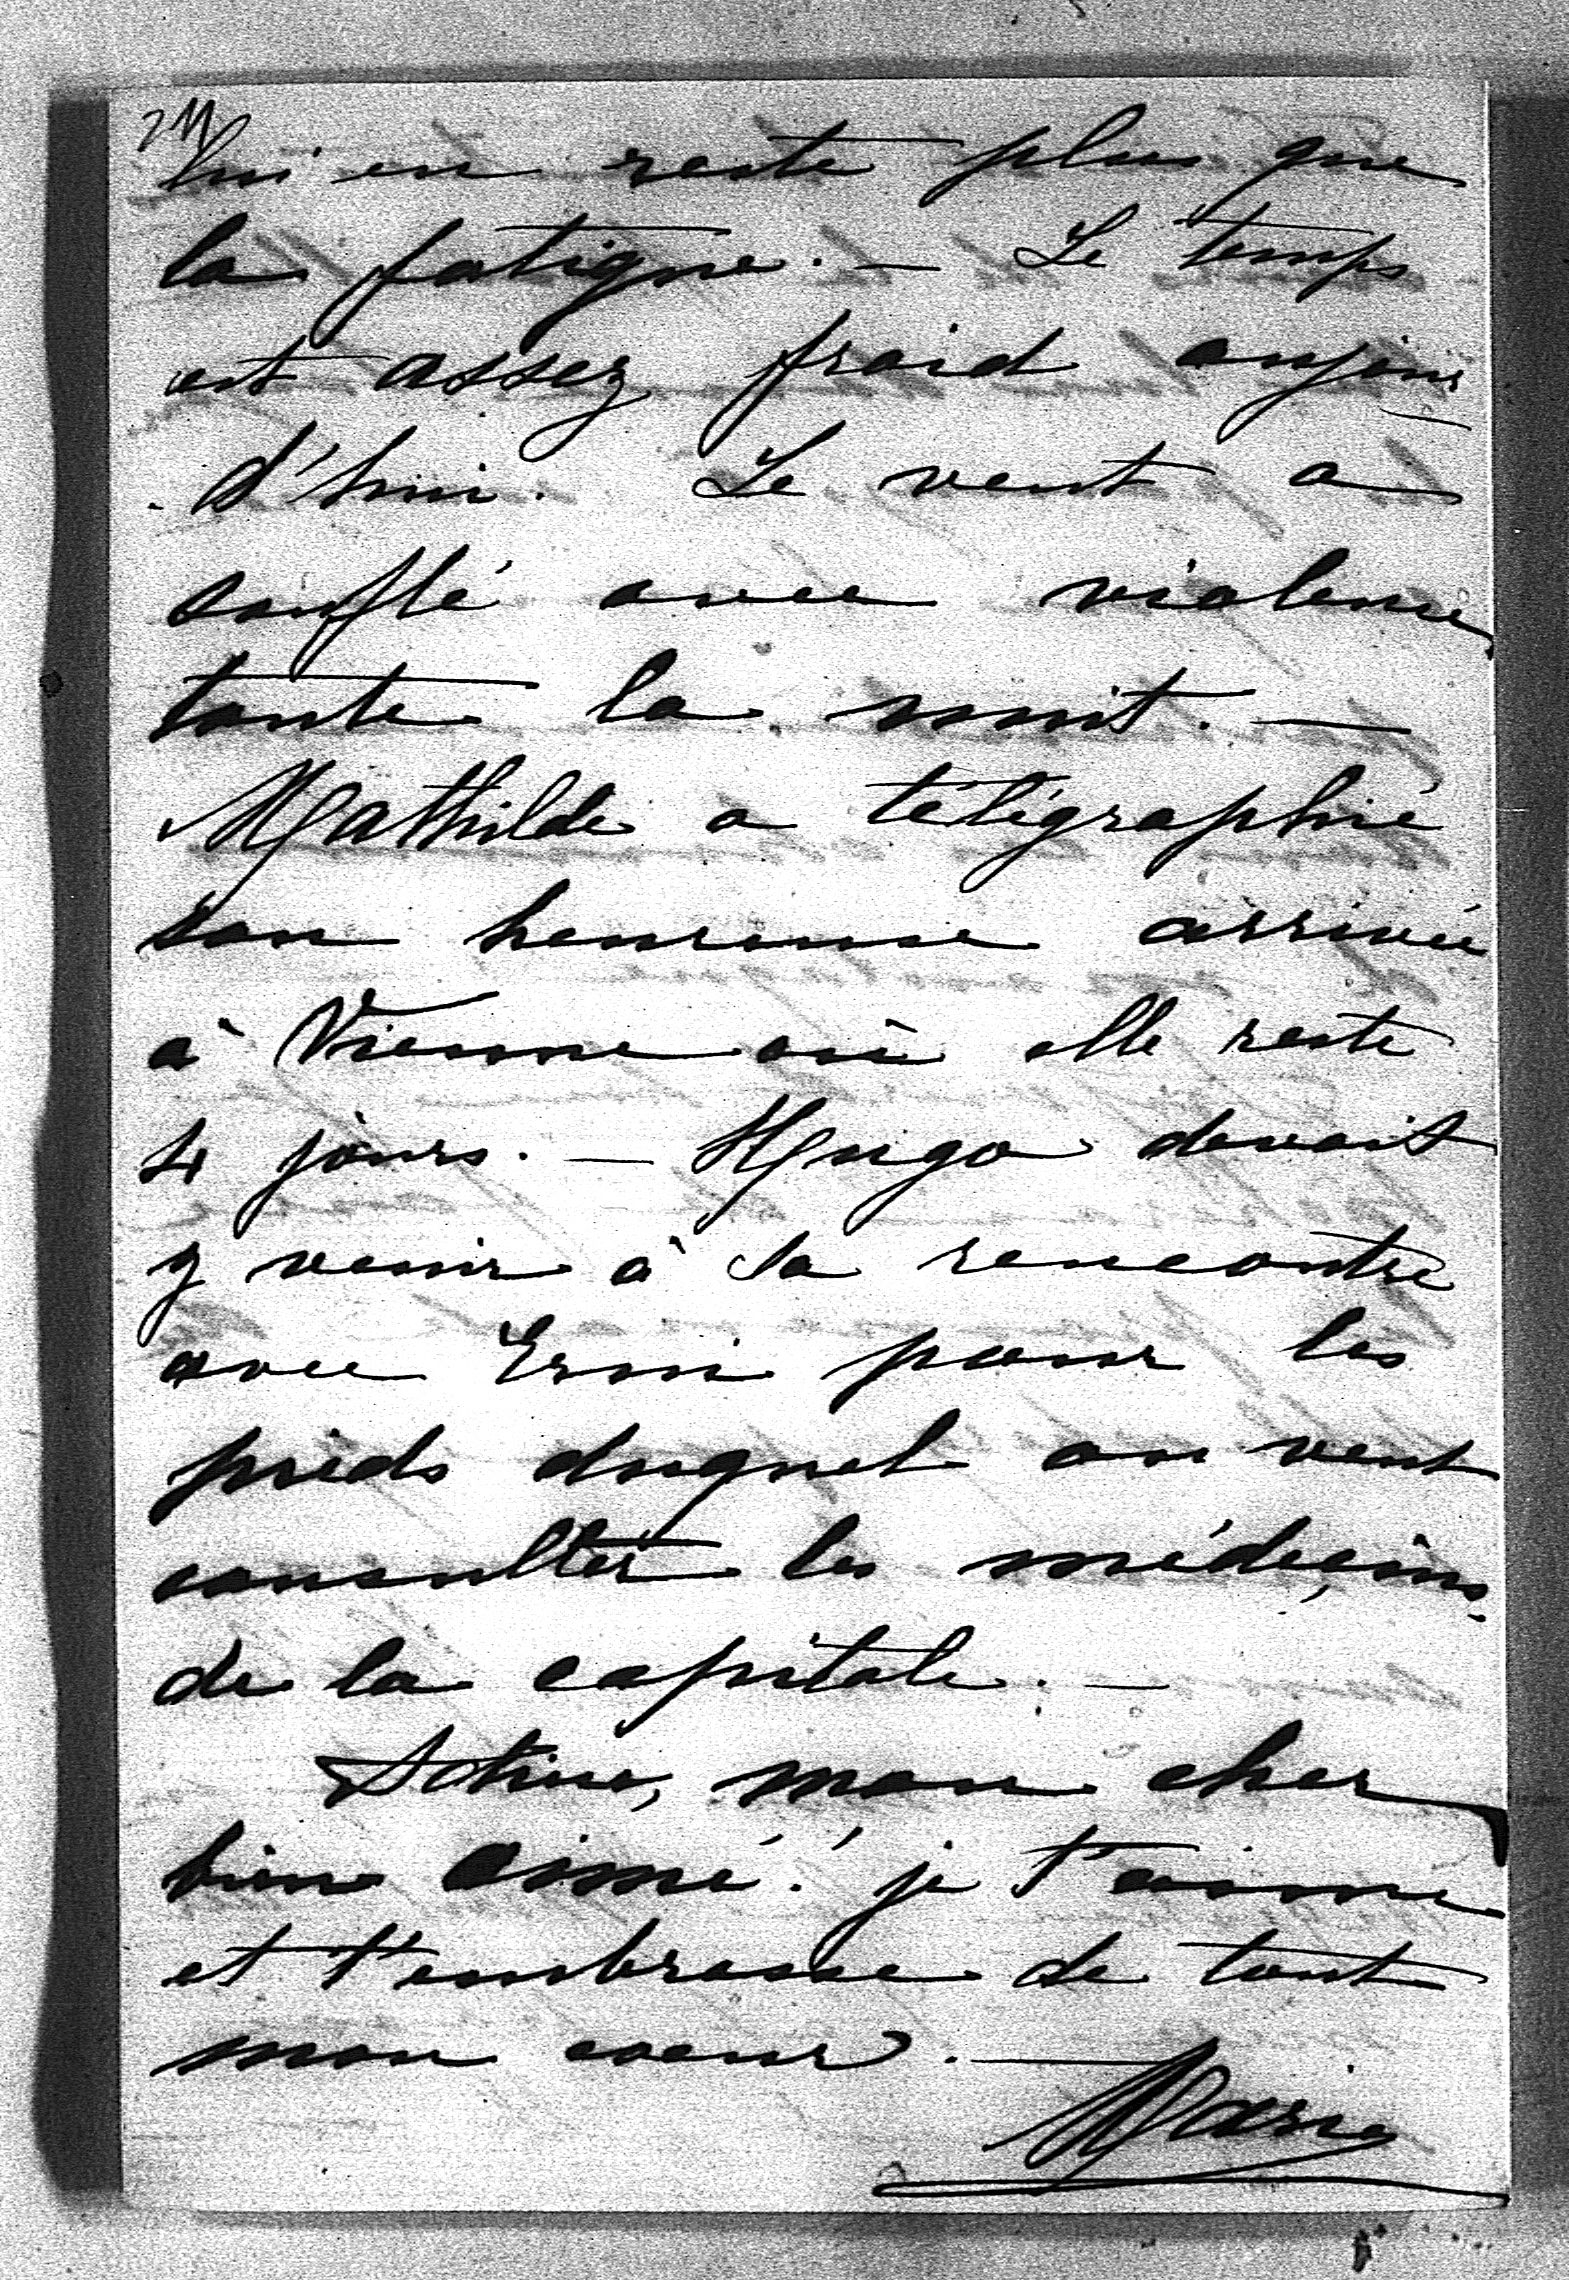 lui en reste plus que
la fatigue. — Le temps
est assez froid aujour
d'hui. Le vent a
souflé avec violence
toute la nuit. —
Mathilde a télégraphié
son heureuse arrivée
à Vienne où elle reste
4 jours. — Hugo devait
y venir à sa rencontre
avec Erni pour les
pieds duquel on veut
consulter les médecins
de la capitale. —
Adieu, mon cher
bien aimé! je t'aime
et t'embrasse de tout
mon coeur. —
Marie